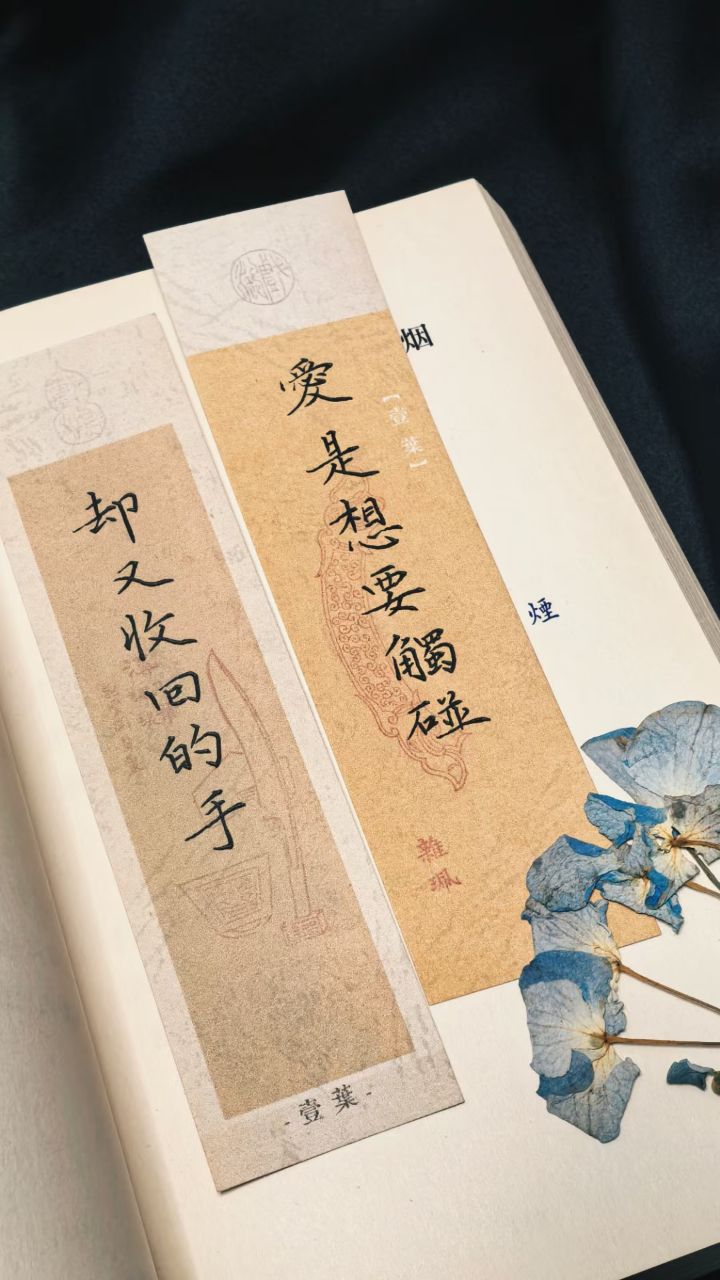 烟
愛是想要觸碰
【壹葉】
雜珮
煙
却又收回的手
-壹葉-